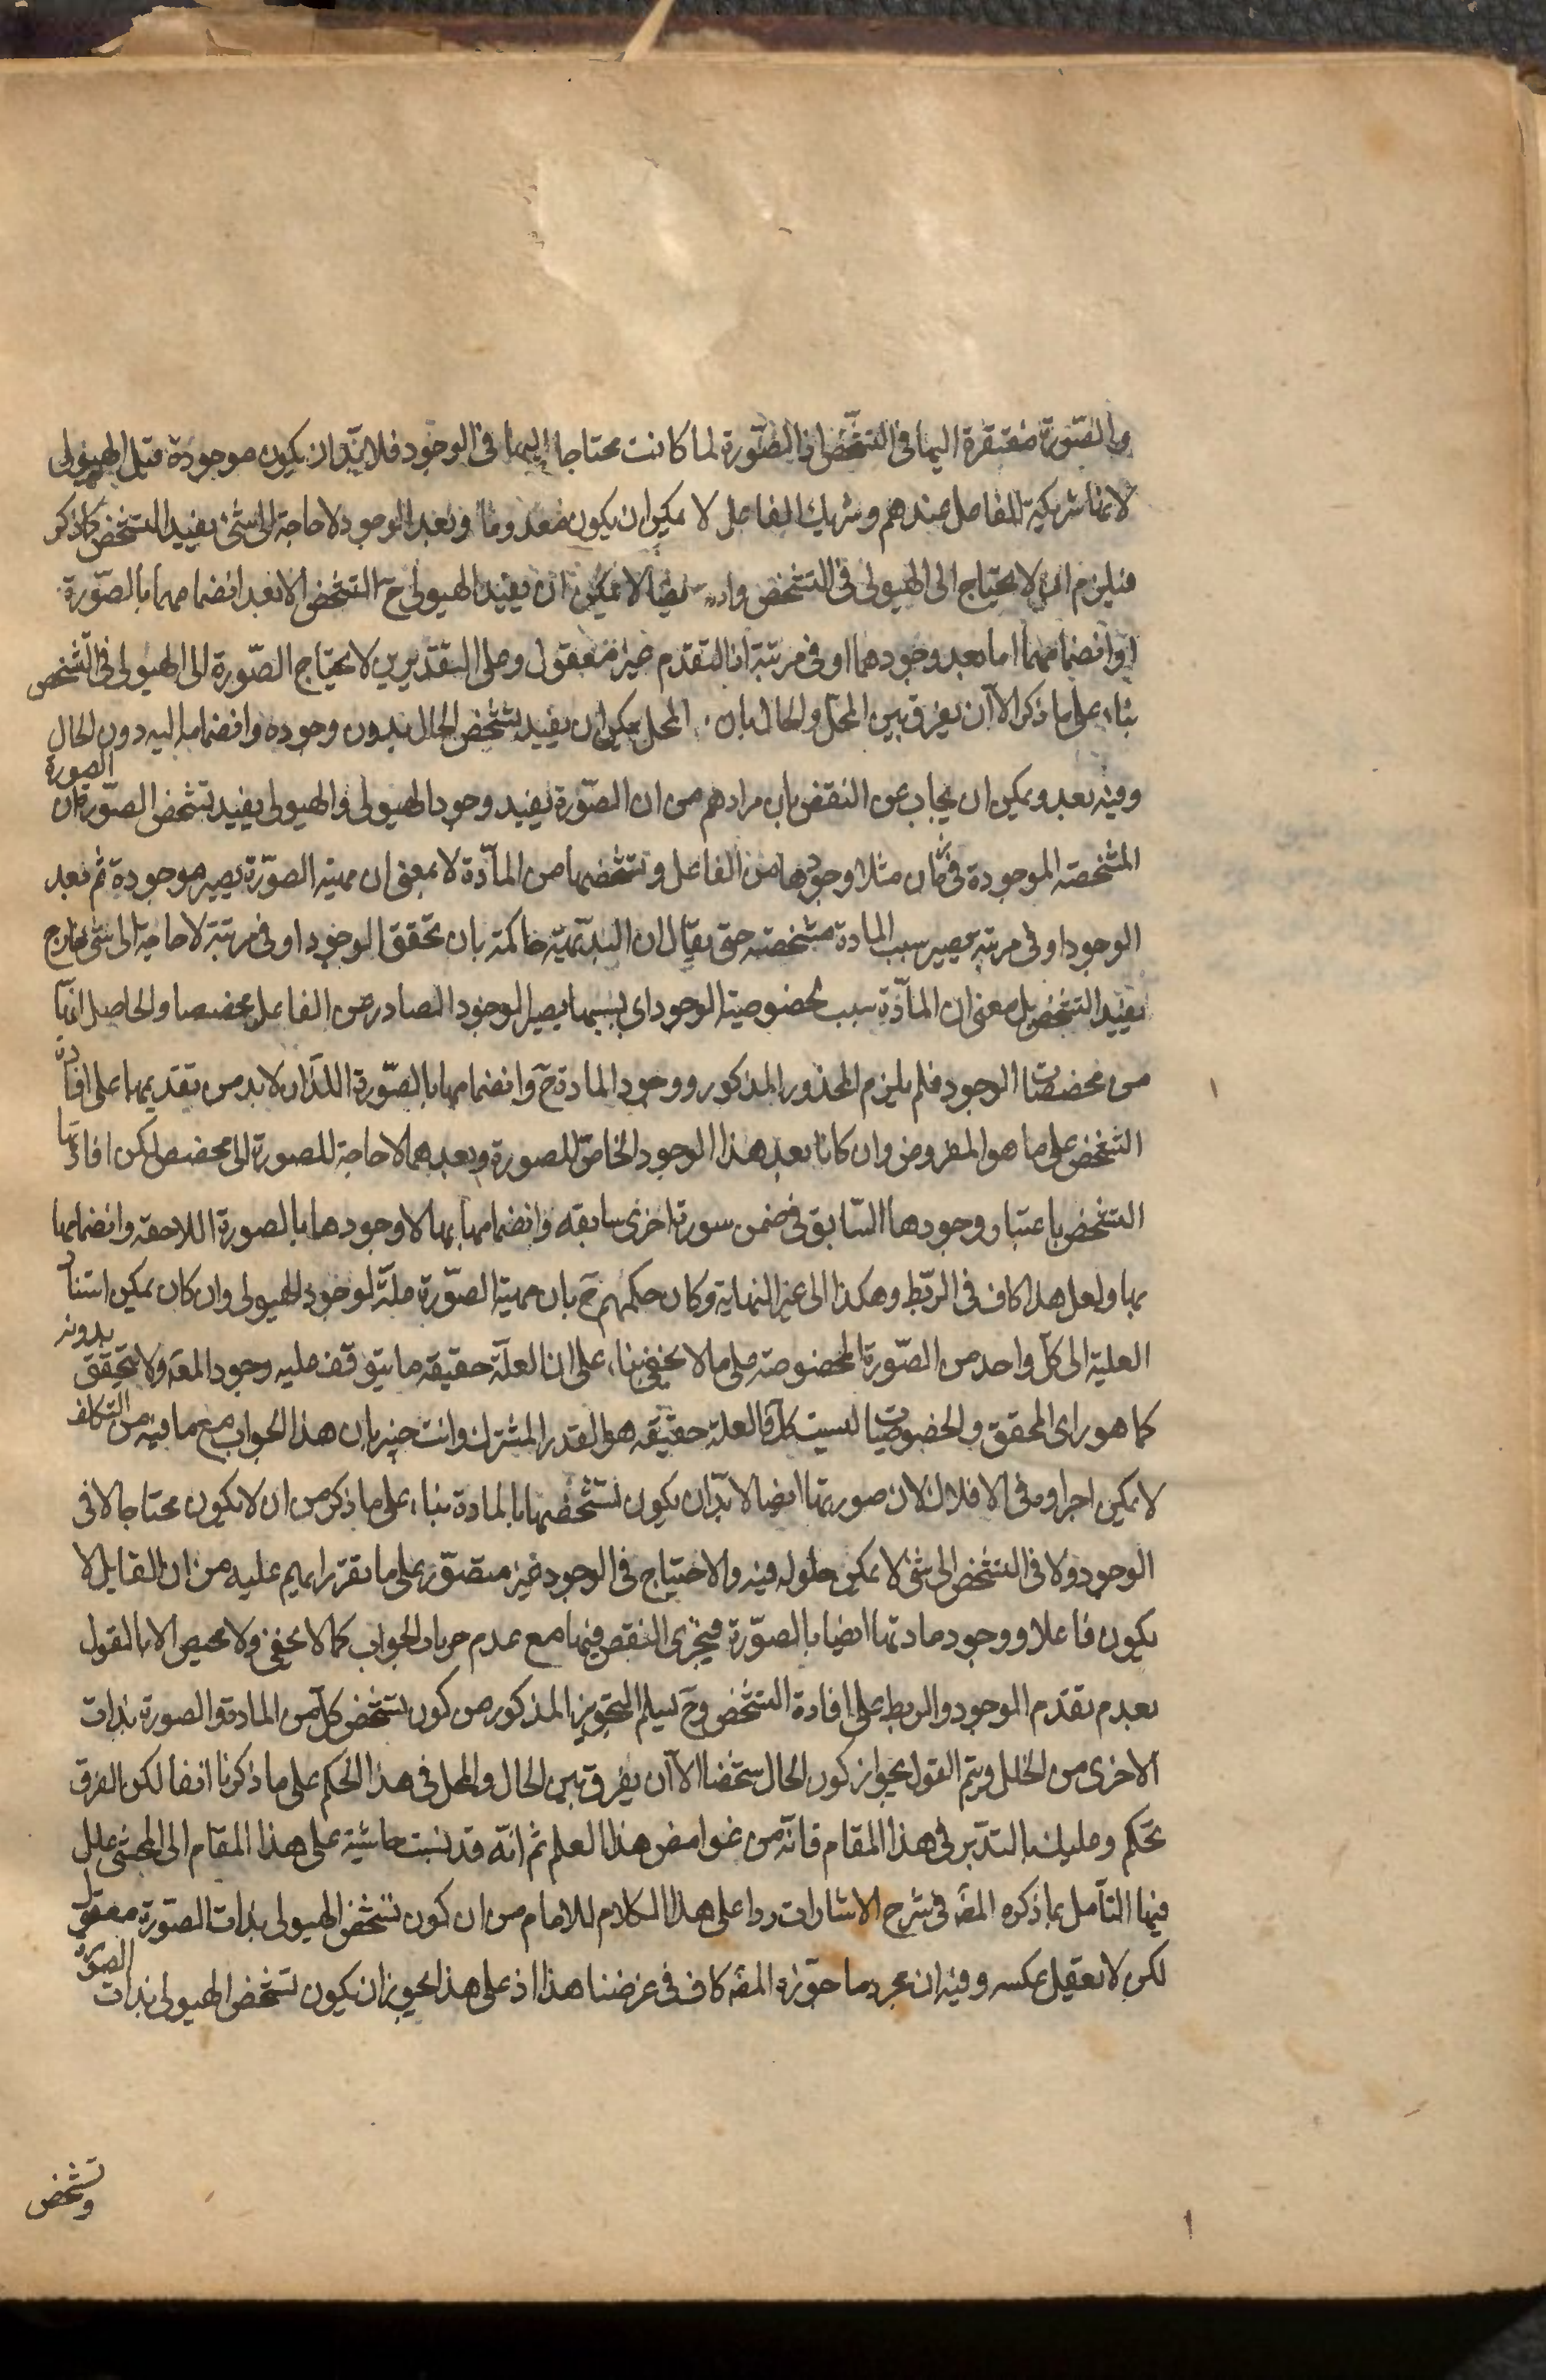 والصّورة مفتقرة اليها فى التشخّص اذ الصّورة لما كانت محتاجا اليها فى الوجود فلا بدّ ان يكون موجودة قبل الهيولى
لانها شريكية للفاعل عندهم وشريك الفاعل لا يمكن ان يكون معدوما وبعد الوجود لا حاجة الى شئ يفيد التشخص كما ذكر
فيلزم ان لا يحتاج الى الهيولى فى التشخص وايضا لا يمكن ان يفيد الهيولى ح التشخص الا بعد انضمامها بالصّورة
اذ انضمامها اما بعد وجودهما او فى مرتبة اذ التقدم غير معقول وعلى التقديرين لا يحتاج الصّورة الى الهيولى فى التّشخص
بناء على ما ذكر الا ان يفرق بين المحل والحال بان المحل يمكن ان يفيد تشخص الحال بدون وجوده وانضمامه اليه دون الحال
وفيه بعد ويمكن ان يجاب عن النقض بان مرادهم من ان الصّورة يفيد وجود الهيولى والهيولى يفيد تشخص الصّورة ان الصورة
المشخصة الموجودة فى مثلا وجودها من الفاعل وتشخصها من المآدّة لا بمعنى ان مهية الصّورة يصير موجودة ثم بعد
الوجود او فى مرتبة يصير بسبب المادة مشخصة حتى يقال ان البديهية حاكمة بان تحقق الوجود او فى مرتبة لا حاجة الى شئ خارج
يفيد التشخص بل معنى ان المآدّة سبب لخصوصية الوجود اى بسببها يصير الوجود الصادر عن الفاعل مخصصا والحاصل انها
من مخصصات الوجود فلم يلزم المحذور المذكور ووجود المادة ح وانضمامها بالصّورة اللذان لا بد من تقديمها على افادة
التشخص على ما هو المفروض وان كانا بعد هذا الوجود الخاصّ للصورة وبعدهما لا حاجة للصورة الى مخصص لكن افادتها
التشخص باعتبار وجودها السّابق فى ضمن سورة اخرى سابقه وانضمامها بها لا وجودها بالصورة اللاحقه وانضمامها
بها ولعل هذا كاف فى الربط وهكذا الى غير النهاية وكان حكمهم ح بان مهية الصّورة علّة لوجود الهيولى وان كان يمكن استناد
العلية الى كلّ واحد من الصّورة المخصوصة على ما لا يخفى بناء على ان العلّة حقيقة ما يتوقف عليه وجود المعه ولا يتحقق بدونه
كما هو راى المحقق والخصوصيات ليست كك فالعلة حقيقه هو القدر المشترك وانت خبير بان هذا الجواب مع ما فيه من التكلف
لا يمكن اجراوه فى الافلاك لان صورتها ايضا لا بدّ ان يكون تشخصها بالمادة بناء على ما ذكر من ان لا يكون محتاجا لا فى
الوجود ولا فى التشخص الى شئ لا يمكن حلوله فيه والاحتياج فى الوجود غير متصوّر على ما تقرر رايهم عليه من ان القابل لا
يكون فاعلا ووجود مادتها ايضا بالصّورة فيجرى النقض فيها مع عدم جريان الجواب كما لا يخفى ولا محيص الا بالقول
بعدم تقدم الوجود والربط على افادة التشخص وح يسلم التجويز المذكور من كون تشخص كل من المادة والصورة بذات
الاخرى من الخلل ويتم القول بجواز كون الحال مشخصا الا ان يفرق بين الحال والمحل فى هذا الحكم على ما ذكرنا انفا لكن الفرق
تحكم وعليك بالتدبّر فى هذا المقام فانّه من غوامض هذا العلم ثم انّه قد نسبت حاشية على هذا المقام الى المحشى علل
فيها التأمل بما ذكره المص فى شرح الاشارات ردا على هذا الكلام للامام من ان كون تشخص الهيولى بذات الصّورة معقول
لكن لا تعقل عكسه وفيه ان مجرد ما جوّزه المص كاف فى غرضنا هذا اذ على هذا يجوز ان يكون تشخص الهيولى بذات الصورة
وتشخص